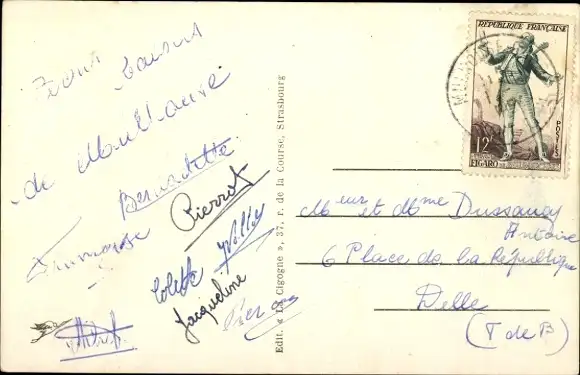 Bons baisers
de Mulhouse
Bernadette
Pierrot
Françoise
Colette
Willy
Jacqueline
Edit. « La Cigogne », 37, r. de la Course, Strasbourg
RÉPUBLIQUE FRANÇAISE
12F
POSTES
FIGARO
Meur et Mme Dussaucy
Antoine
6 Place de la République
Delle
(T de B)